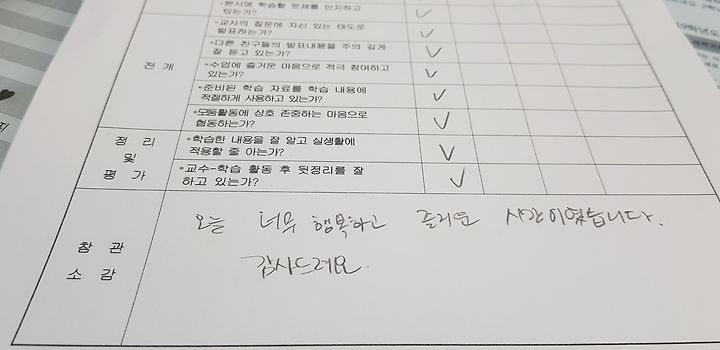 ◦본시에 학습할 문제를 인지하고
있는가?
◦교사의 질문에 자신 있는 태도로
발표하는가?
◦다른 친구들의 발표내용을 주의 깊게
잘 듣고 있는가?
전 개
◦수업에 즐거운 마음으로 적극 참여하고
있는가?
◦준비된 학습 자료를 학습 내용에
적절하게 사용하고 있는가?
◦모둠활동에 상호 존중하는 마음으로
협동하는가?
정 리
및
평 가
◦학습한 내용을 잘 알고 실생활에
적용할 줄 아는가?
◦교수-학습 활동 후 뒷정리를 잘
하고 있는가?
참 관
소 감
오늘 너무 행복하고 즐거운 시간이였습니다.
감사드려요.